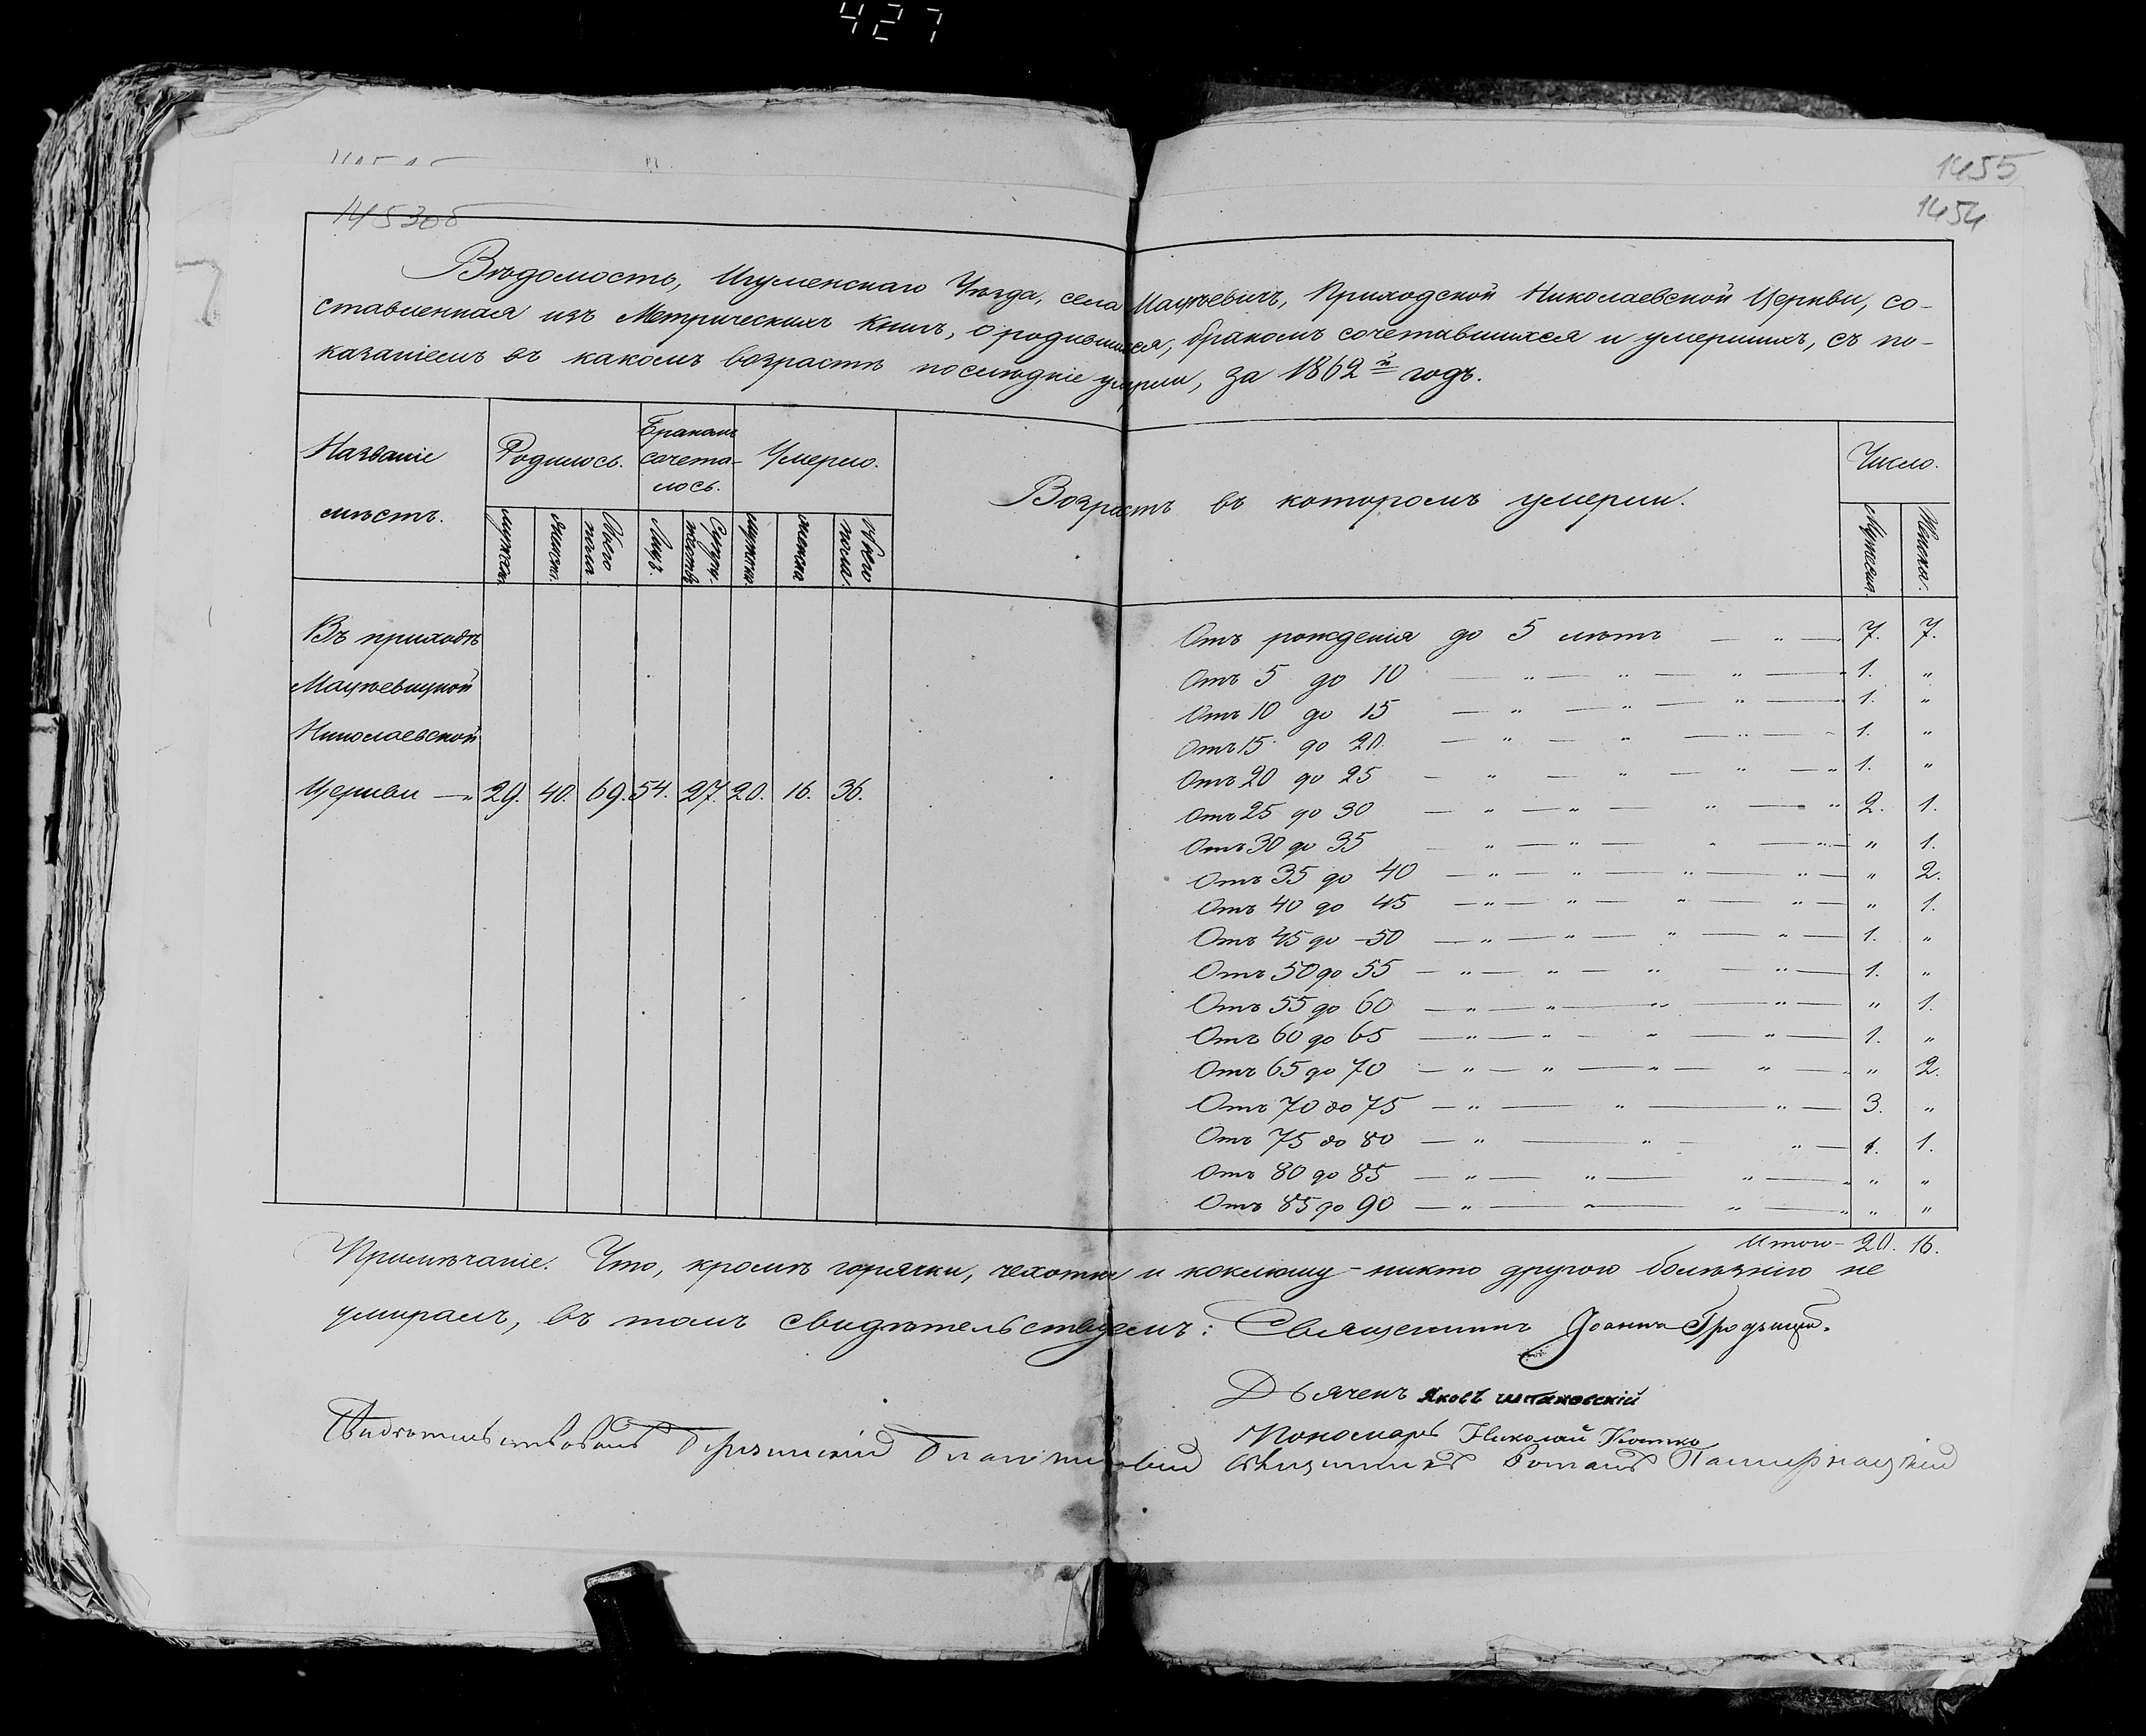 427
1455
1453об
1454
Вѣдомость, Игуменскаго Уѣзда, села Мацѣевичъ, Приходской Николаевской Церкви, со-
ставленная изъ Метрическихъ Книгъ, о родившихся, бракомъ сочетавшихся и умершихъ, съ по-
казаніемъ въ какомъ возрастѣ послѣдніе умерли, за 1862й годъ.
Названіе мѣстъ.
Родилось.
Бракомъ сочета-лось.
Умерло.
Возрастъ въ которомъ умерли.
Число.
мужск. женск. Обоего пола. Лицъ. Супру-жествъ мужск. женска Обоего пола. Мужеска. Женска.
Въ приходѣ
Мацѣевицкой
Николаевской
Церкви — „ 29. 40. 69. 54. 27. 20. 16. 36.
Отъ рожденія до 5 лѣтъ — „ — 7. 7.
Отъ 5 до 10 — „ — „ — „ — 1. „
Отъ 10 до 15 — „ — „ — „ — 1. „
Отъ 15 до 20. — „ — „ — „ — 1. „
Отъ 20 до 25 — „ — „ — „ — „ 1. „
Отъ 25 до 30 — „ — „ — „ — „ 2. 1.
Отъ 30 до 35 — „ — „ — „ — „ — „ 1.
Отъ 35 до 40 — „ — „ — „ — „ — „ 2.
Отъ 40 до 45 — „ — „ — „ — „ — „ 1.
Отъ 45 до 50 — „ — „ — „ — „ — 1. „
Отъ 50 до 55 — „ — „ — „ — „ — 1. „
Отъ 55 до 60 — „ — „ — „ — „ — „ 1.
Отъ 60 до 65 — „ — „ — „ — „ — 1. „
Отъ 65 до 70 — „ — „ — „ — „ — „ 2.
Отъ 70 до 75 — „ — „ — „ — 3. „
Отъ 75 до 80 — „ — „ — „ — 1. 1.
Отъ 80 до 85 — „ — „ — „ — „ „
Отъ 85 до 90 — „ — „ — „ — „ „
Итого — 20. 16.
Примѣчаніе. Что, кромѣ горячки, чехотки и коклюшу — никто другою болѣзнію не
умиралъ, въ томъ свидѣтельствуемъ: Священникъ Іоаннъ Гродзицкій.
Дьячекъ Яковъ
Пономарь Николай
Свидѣтельствовалъ Березинскій Благочинный Священникъ Романъ